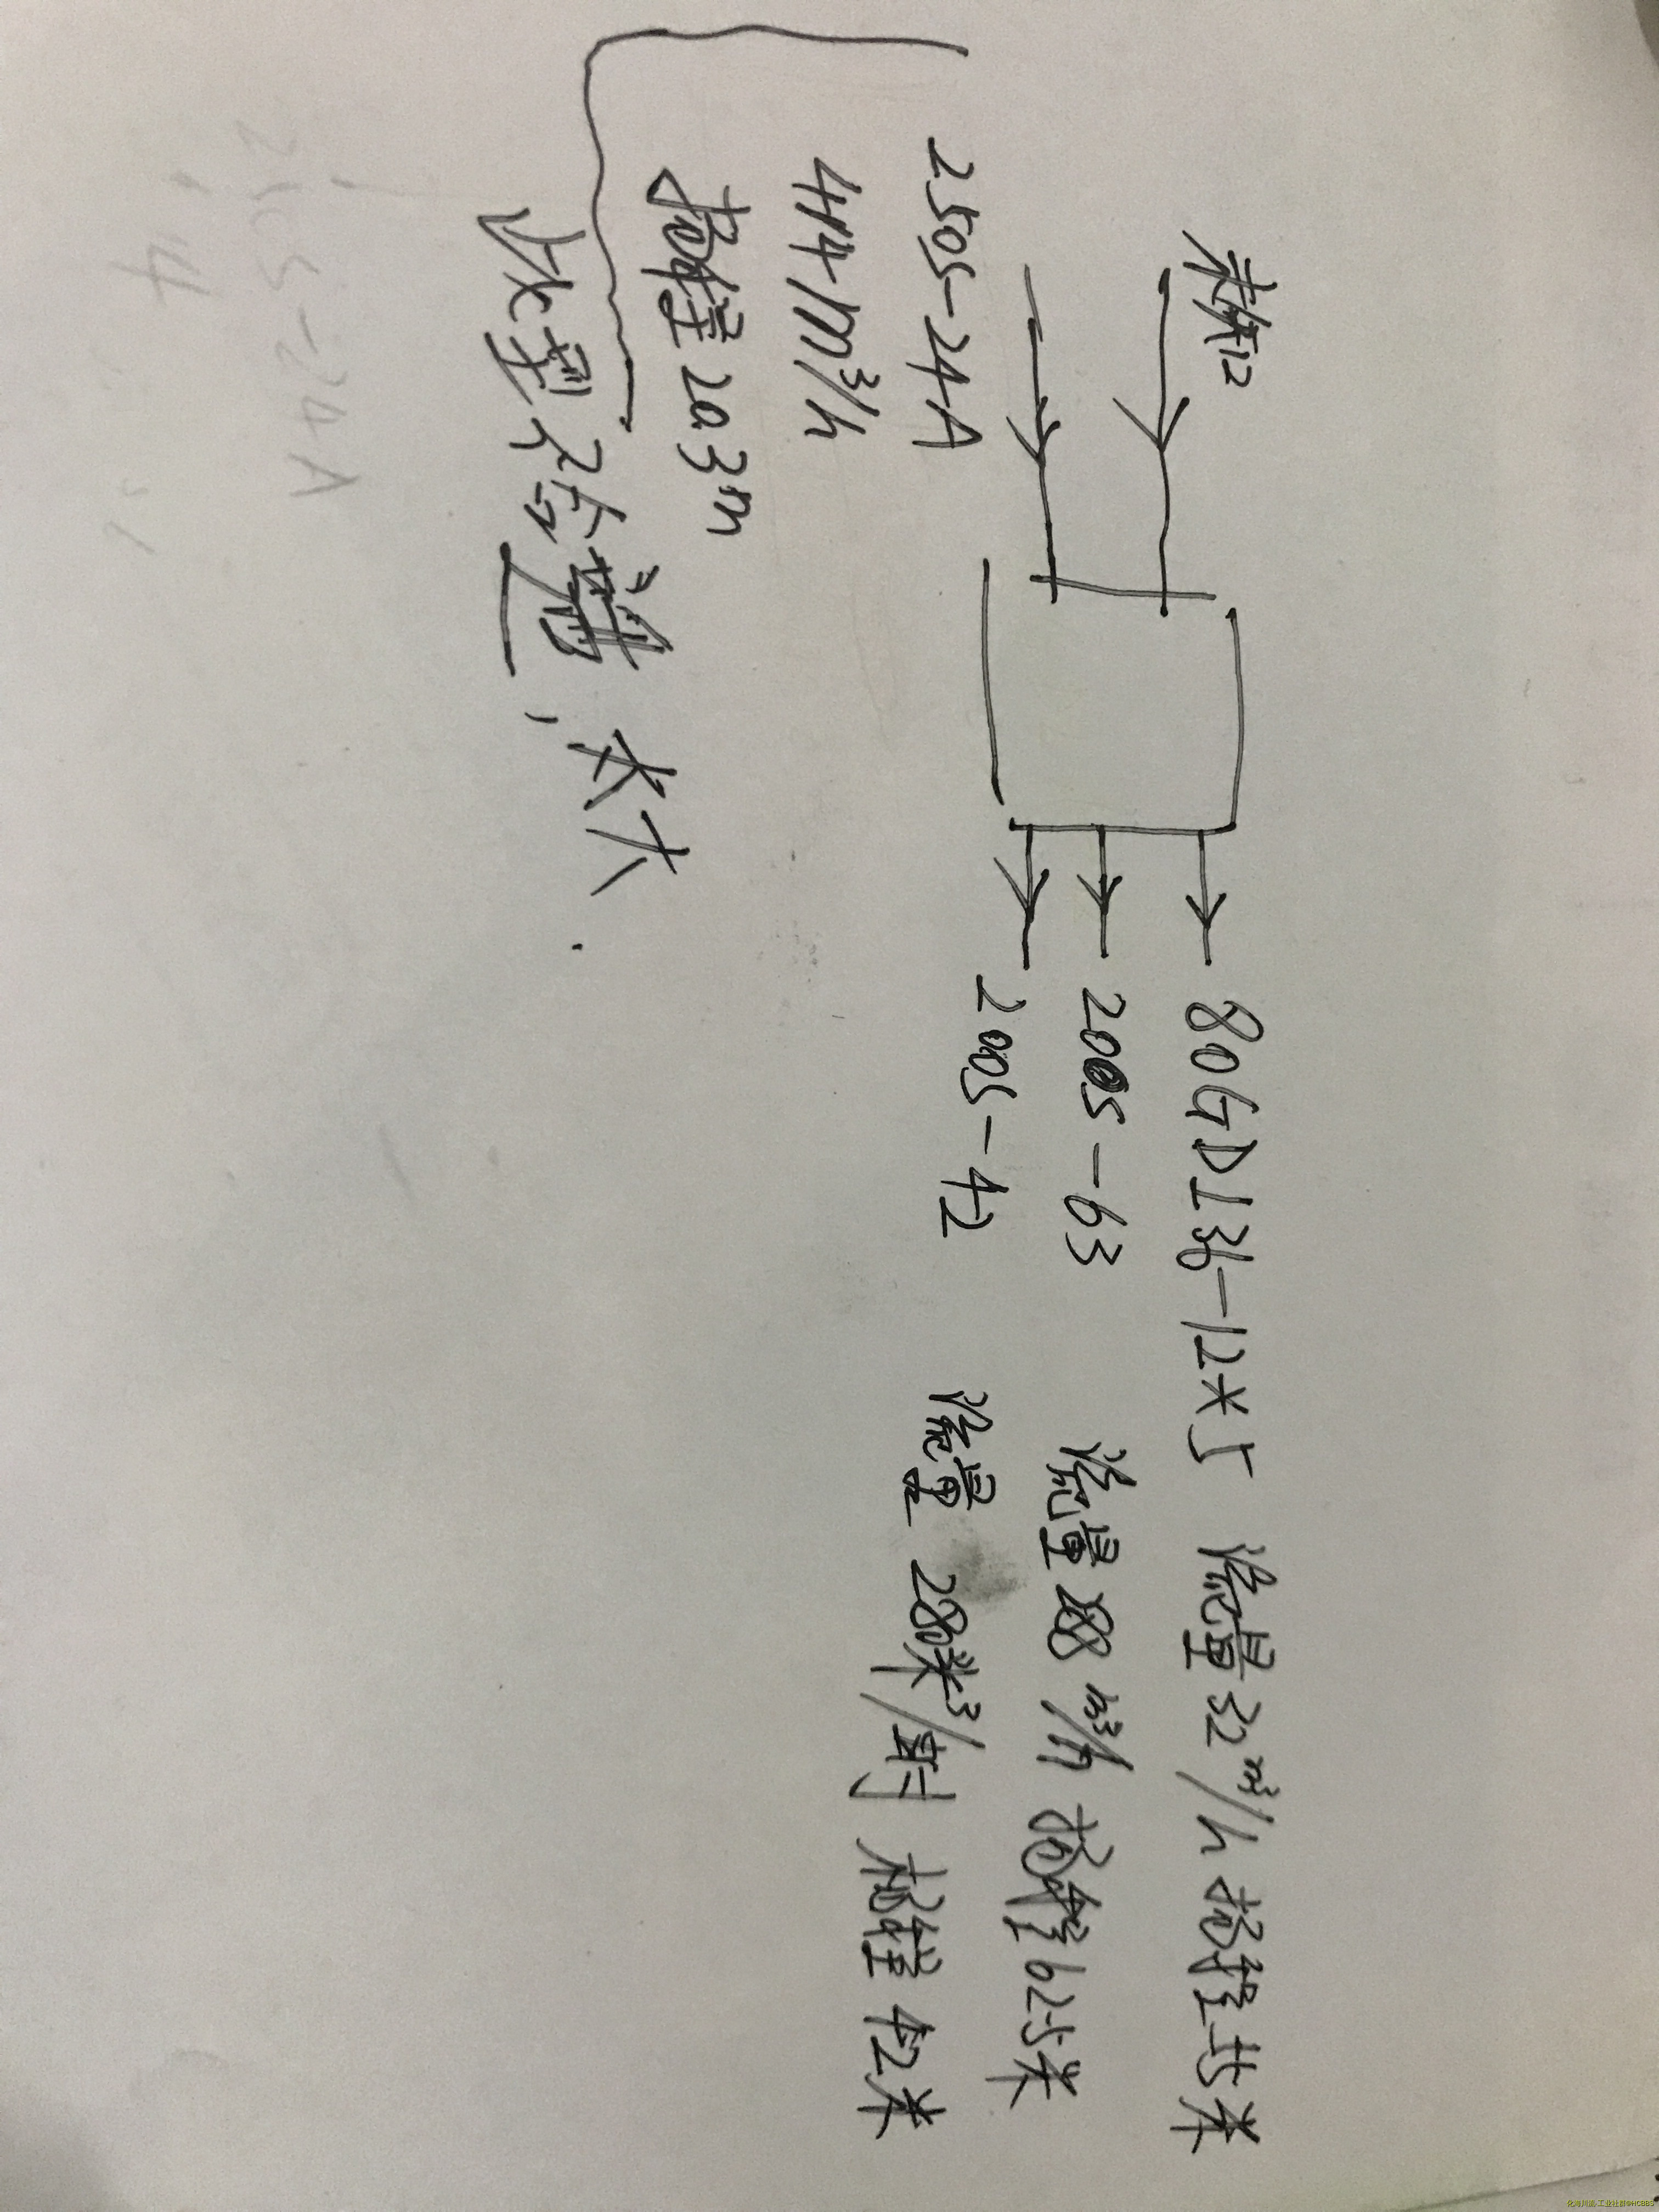 80GDL36-12×5 流量32m³/h 扬程55米
200S-63 流量288m³/h 扬程62.5米
200S-42 流量280米³/时 扬程42米
250S-24A
414m³/h
扬程20.3m
选型不合 , 太大.